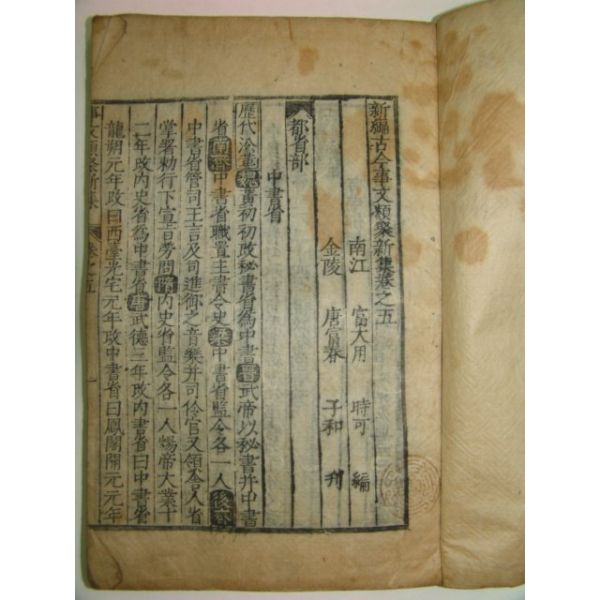 新編古今事文類聚新集卷之五
南江 富大用 時可 編
金陵 唐富春 子和 刊
都省部
中書省
歷代沿革魏黃初初改秘書省爲中書晉武帝以秘書并中書
省南齊中書省職置主書令史梁中書省監令各一人後魏
中書省管司王言及司進御之音樂并司伶官又領舍人省
掌署勅行下宣旨勞問隋内史省監令各一人煬帝大業十
二年改内史省爲中書省唐武德三年改内書省曰中書省
龍朔元年改曰西臺光宅元年改中書省曰鳳閣開元元年
事文類聚新集 卷之五 一